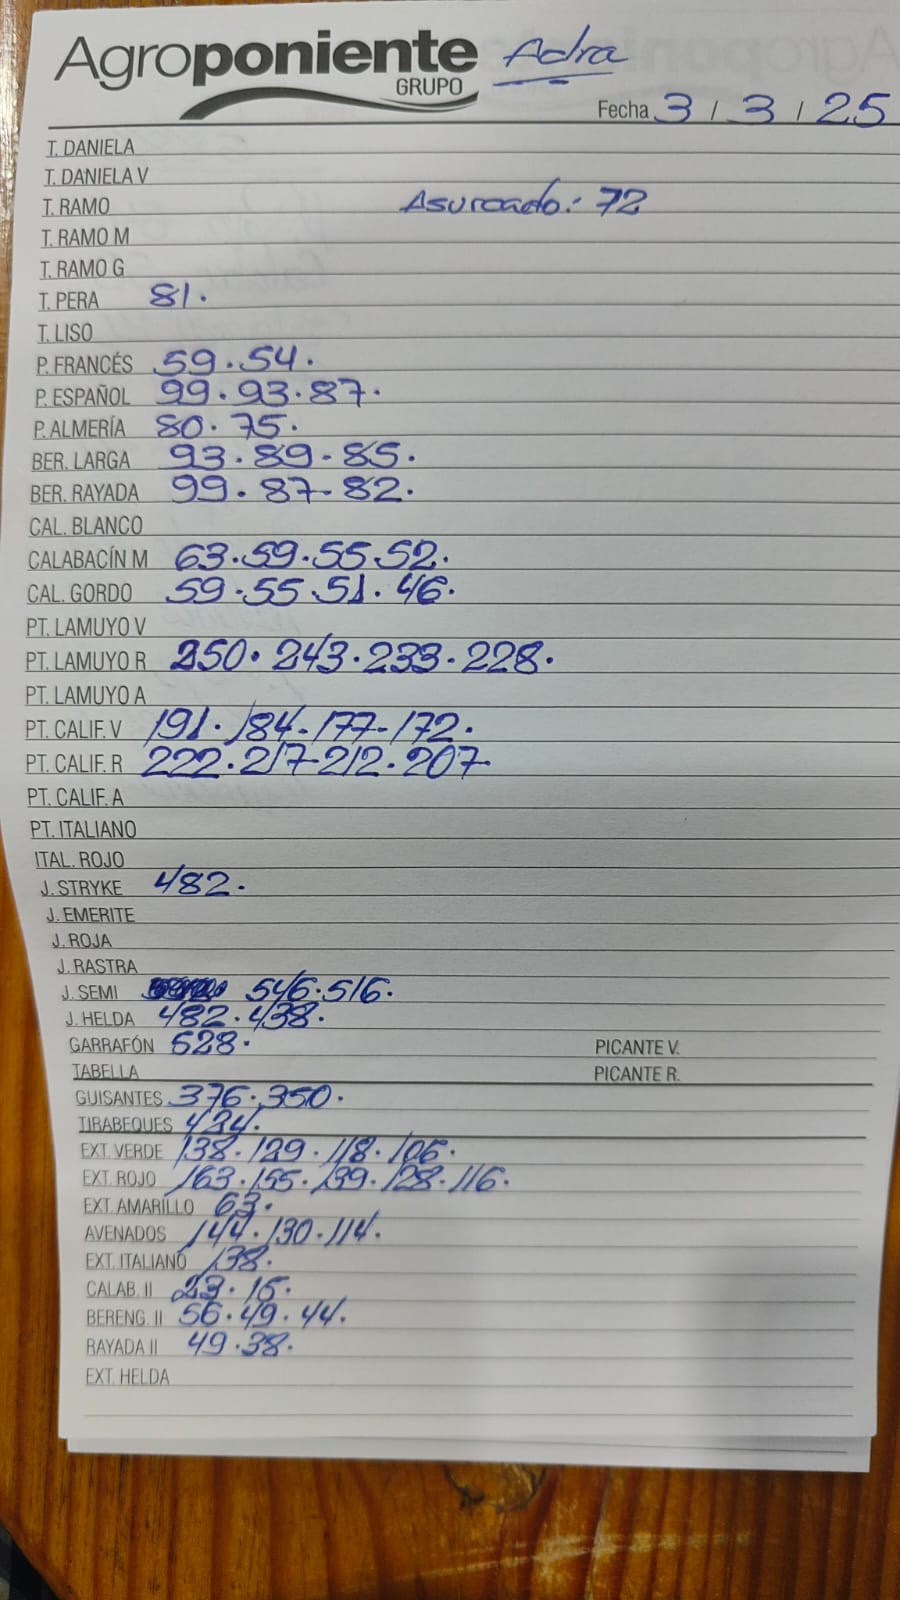 Agroponiente Adra
GRUPO
Fecha 3 / 3 / 25
T. DANIELA
T. DANIELA V
T. RAMO Asurcado: 72
T. RAMO M
T. RAMO G
T. PERA 81.
T. LISO
P. FRANCÉS 59.54.
P. ESPAÑOL 99.93.87.
P. ALMERÍA 80.75.
BER. LARGA 93.89.85.
BER. RAYADA 99.87-82.
CAL. BLANCO
CALABACÍN M 63.59.55.52.
CAL. GORDO 59.55.51.46.
PT. LAMUYO V
PT. LAMUYO R 250.243.233.228.
PT. LAMUYO A
PT. CALIF. V 191.184-177-172.
PT. CALIF. R 222.217-212.207.
PT. CALIF. A
PT. ITALIANO
ITAL. ROJO
J. STRYKE 482.
J. EMERITE
J. ROJA
J. RASTRA
J. SEMI 546.516.
J. HELDA 482.438.
GARRAFÓN 528. PICANTE V.
TABELLA PICANTE R.
GUISANTES 376.350.
TIRABEQUES 424.
EXT. VERDE 138.129.118.106.
EXT. ROJO 163.155.139.128.116.
EXT. AMARILLO 63.
AVENADOS 144.130.114.
EXT. ITALIANO 138.
CALAB. II 23.15.
BERENG. II 56.49.44.
RAYADA II 49.38.
EXT. HELDA